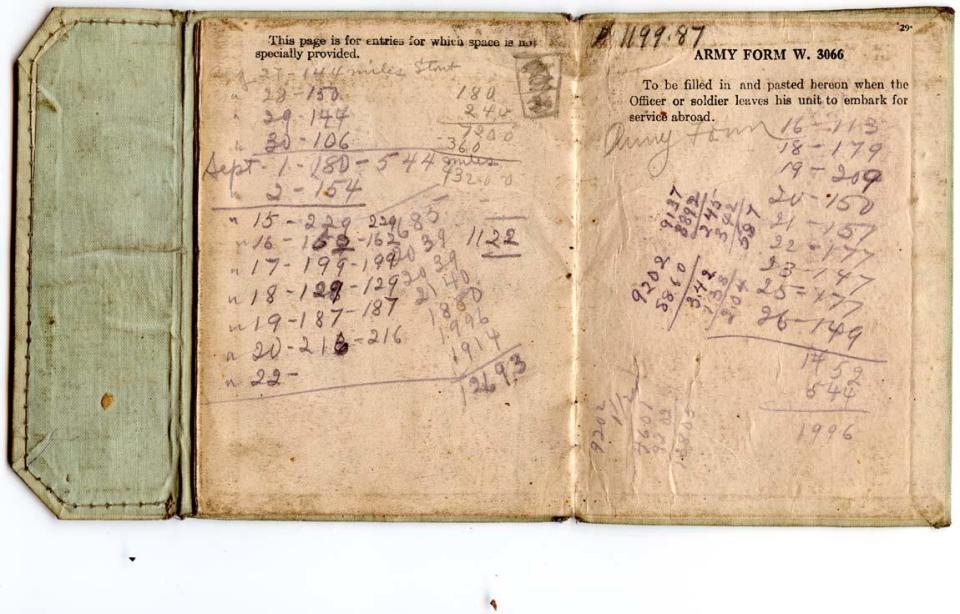 This page is for entries for which space is not
specially provided.
27-144 miles
" 28-150
" 29-144
" 30-106
Sept. 1-180-544 miles
" 2-154
180
240
7200
360
43200
" 15-229 229
" 16-162-162
" 17-199-199
" 18-129-129
" 19-187-187
" 20-216-216
" 22-
1122
685
2039
2039
2140
1880
1996
1914
12693
1199.87
29.
ARMY FORM W. 3066
To be filled in and pasted hereon when the
Officer or soldier leaves his unit to embark for
service abroad.
Army Form
16-113
18-179
19-209
20-150
21-157
22-177
23-147
25-177
26-149
1459
544
1996
9137
8892
245
342
587
9202
5860
3.42
9202
1/2
4601
9202
13803